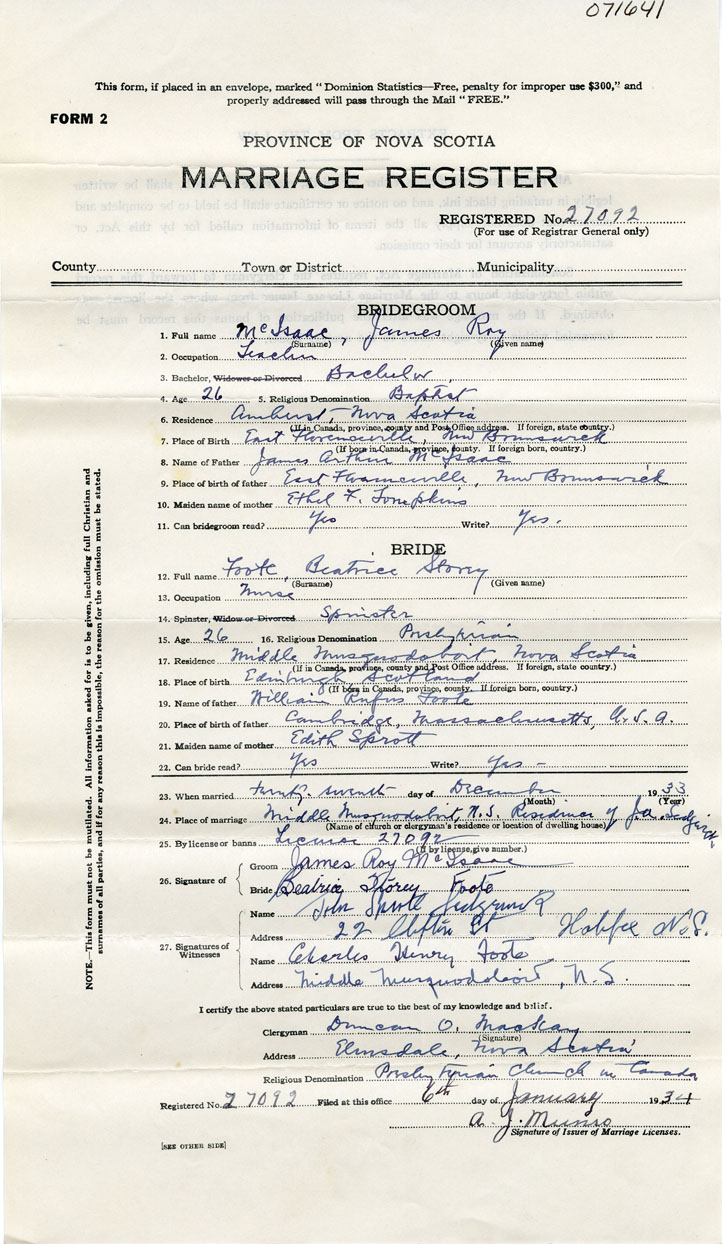 071641
This form, if placed in an envelope, marked "Dominion Statistics—Free, penalty for improper use $300," and
properly addressed will pass through the Mail "FREE."
FORM 2
PROVINCE OF NOVA SCOTIA
MARRIAGE REGISTER
REGISTERED No. 27092
(For use of Registrar General only)
County Town or District Municipality
BRIDEGROOM
1. Full name McIsaac, James Roy
(Surname) (Given name)
2. Occupation Teacher
3. Bachelor, Widower or Divorced Bachelor
4. Age 26 5. Religious Denomination Baptist
6. Residence Amherst, Nova Scotia
(If in Canada, province, county and Post Office address. If foreign, state country.)
7. Place of Birth East Florenceville, New Brunswick
(If born in Canada, province, county. If foreign born, country.)
8. Name of Father James Arthur McIsaac
9. Place of birth of father East Florenceville, New Brunswick
10. Maiden name of mother Ethel F. Tompkins
11. Can bridegroom read? Yes Write? Yes.
BRIDE
12. Full name Foote, Beatrice Storey
(Surname) (Given name)
13. Occupation Nurse
14. Spinster, Widow or Divorced Spinster
15. Age 26 16. Religious Denomination Presbyterian
17. Residence Middle Musquodoboit, Nova Scotia
(If in Canada, province, county and Post Office address. If foreign, state country.)
18. Place of birth Edinburgh, Scotland
(If born in Canada, province, county. If foreign born, country.)
19. Name of father William Rufus Foote
20. Place of birth of father Cambridge, Massachusetts, U.S.A.
21. Maiden name of mother Edith Sprott
22. Can bride read? Yes Write? Yes -
23. When married twenty-seventh day of December 1933
(Month) (Year)
24. Place of marriage Middle Musquodoboit, N.S. Residence of
(Name of church or clergyman's residence or location of dwelling house)
25. By license or banns License 27092
(If by license, give number.)
26. Signature of
Groom James Roy McIsaac
Bride Beatrice Storey Foote
27. Signatures of Witnesses
Name John Sprott
Address 22 Clifton St Halifax N.S.
Name Charles Henry Foote
Address Middle Musquodoboit, N.S.
I certify the above stated particulars are true to the best of my knowledge and belief.
Clergyman Duncan O. Mackay
(Signature)
Address Elmsdale, Nova Scotia
Religious Denomination Presbyterian Church in Canada
Registered No. 27092 Filed at this office 6th day of January 1934
A. J. Munro
Signature of Issuer of Marriage Licenses.
[SEE OTHER SIDE]
NOTE.—This form must not be mutilated. All information asked for is to be given, including full Christian and
surnames of all parties, and if for any reason this is impossible, the reason for the omission must be stated.